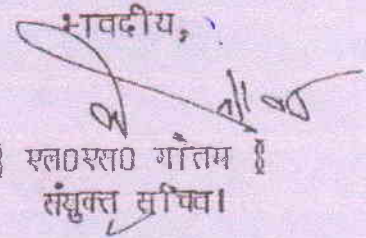 भवदीय,
( एल0एस0 गौतम )
संयुक्त सचिव।